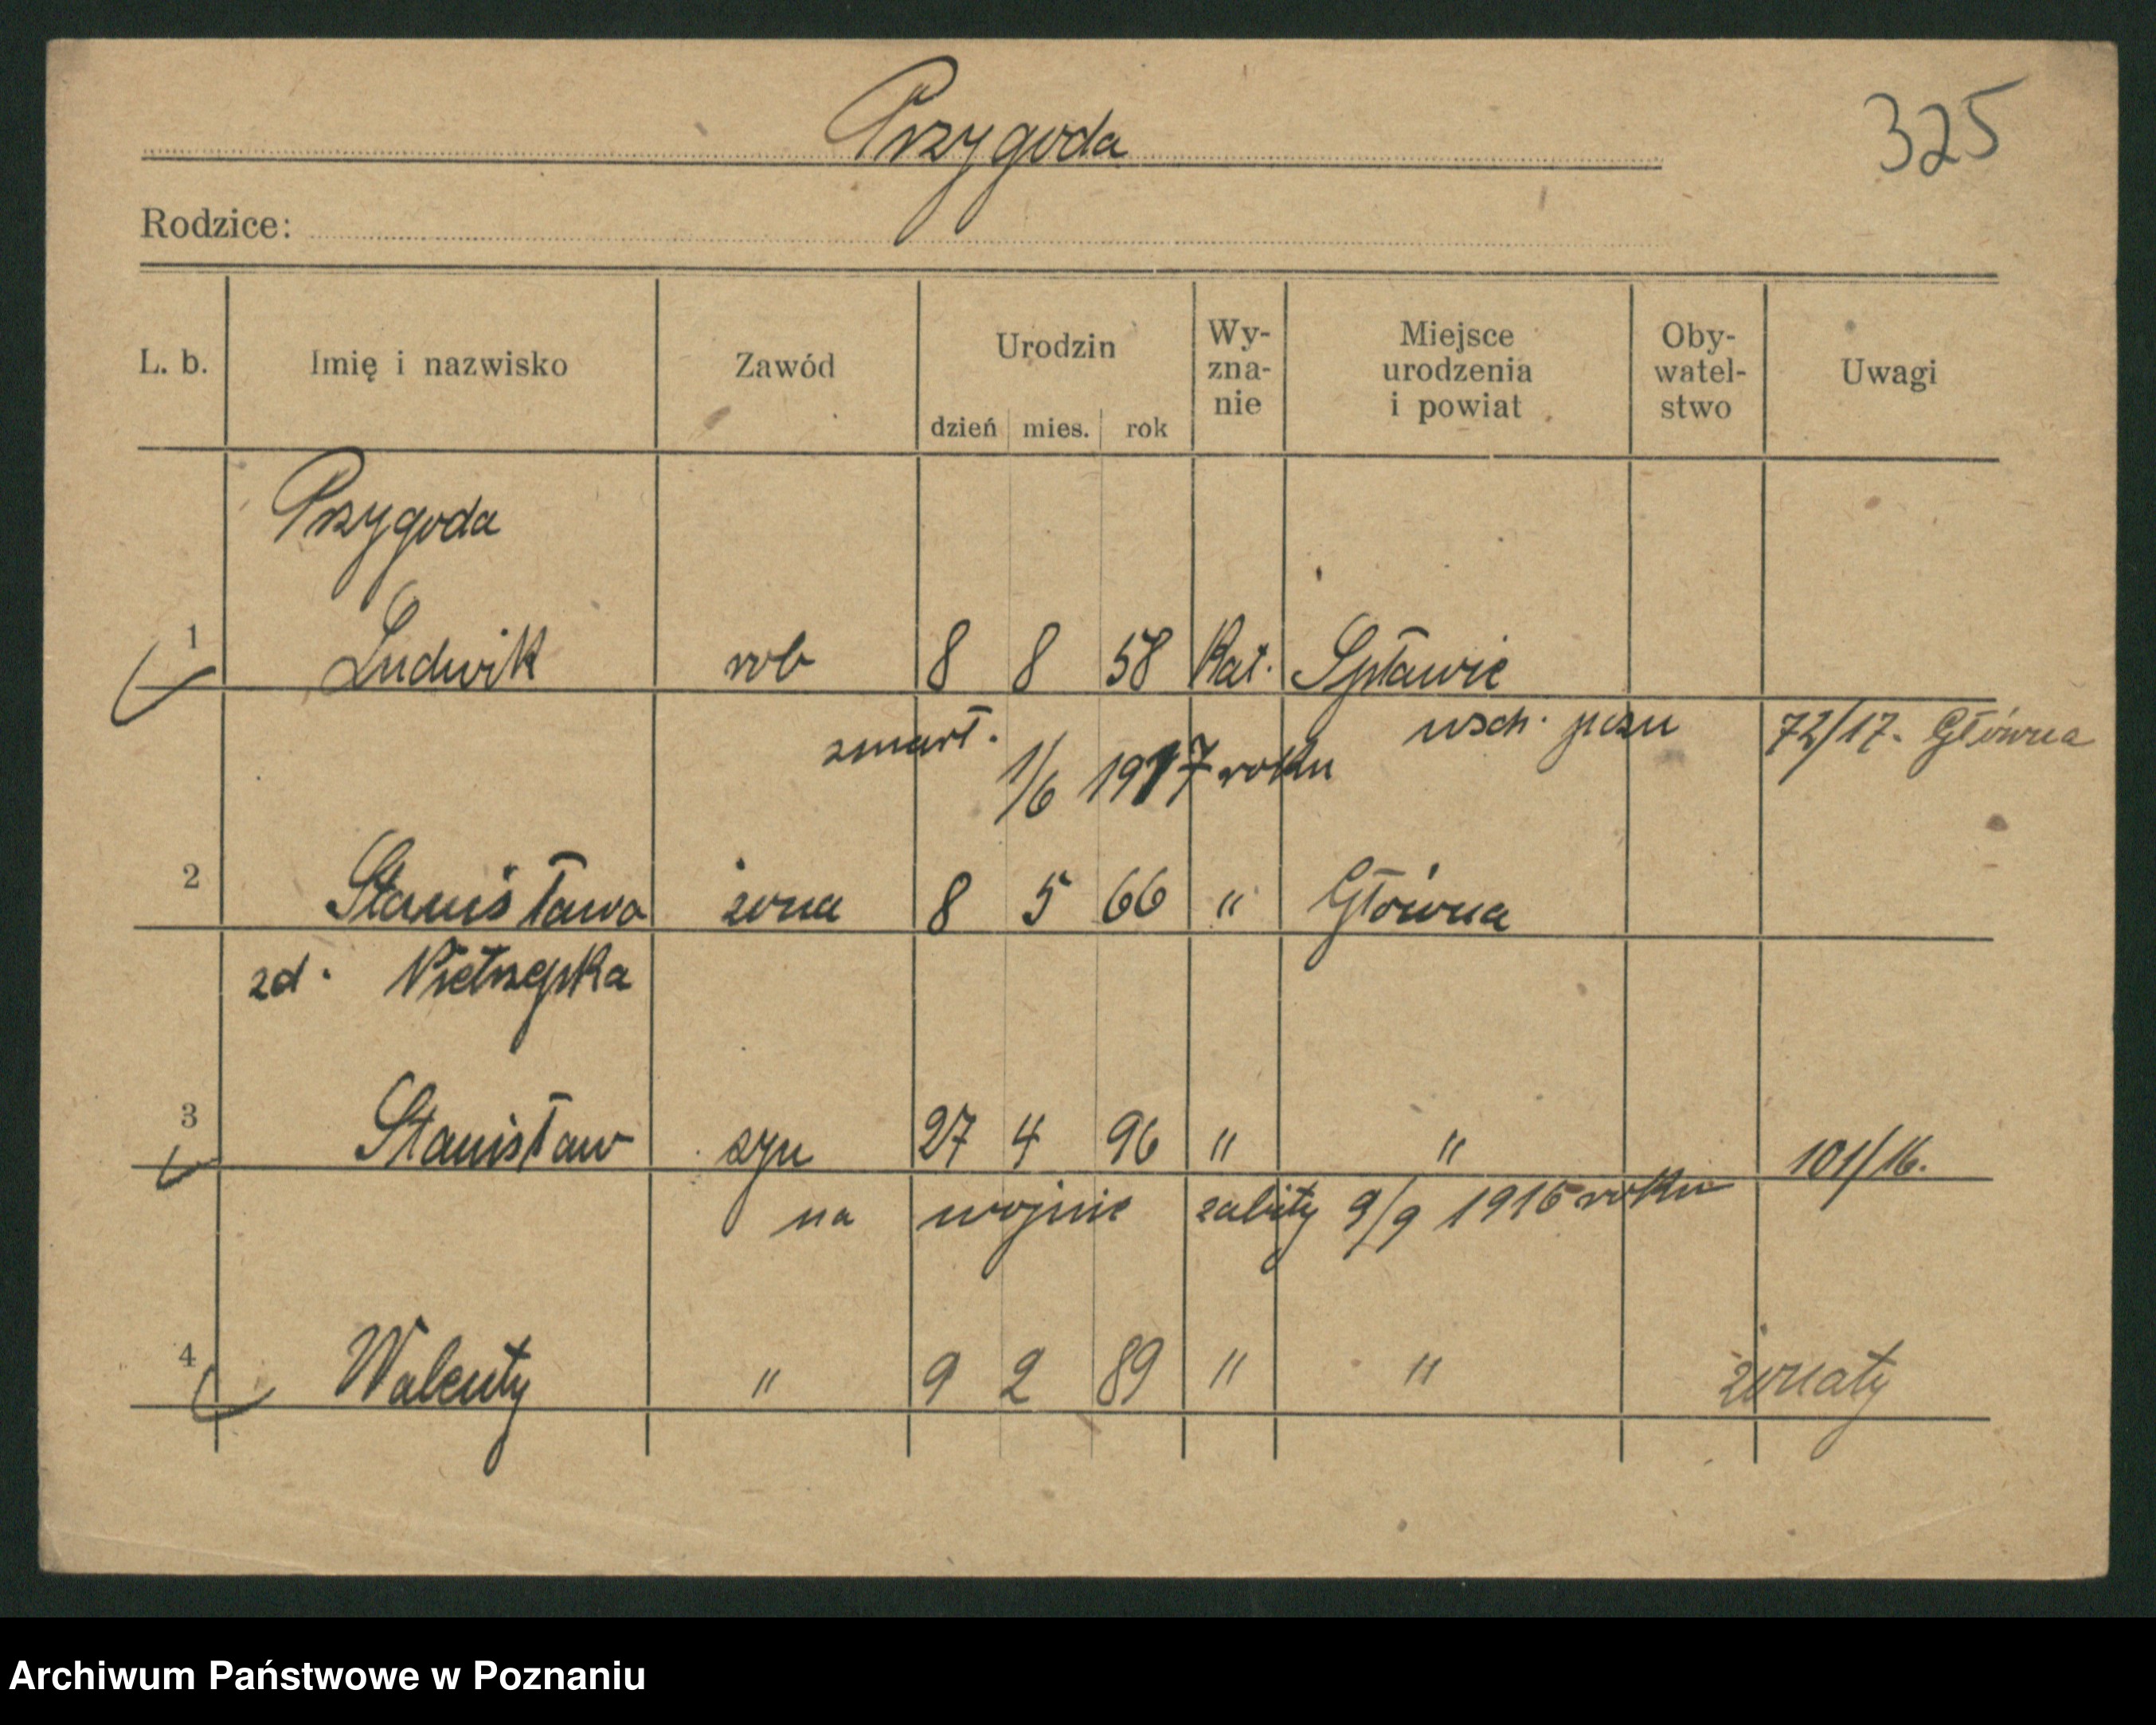 Przygoda
325
Rodzice:
L. b. Imię i nazwisko Zawód Urodzin dzień mies. rok Wy-zna-nie Miejsce urodzenia i powiat Oby-watel-stwo Uwagi
Przygoda
1 Ludwik rob 8 8 58 Kat. Spławie
zmarł. 1/6 1917 roku wsch. pozn 72/17. Główna
2 Stanisława żona 8 5 66 " Główna
zd.
3 Stanisław syn 27 4 96 " " 101/16.
na wojnie zabity 9/9 1916 roku
4 Walenty " 9 2 89 " " żonaty
Archiwum Państwowe w Poznaniu